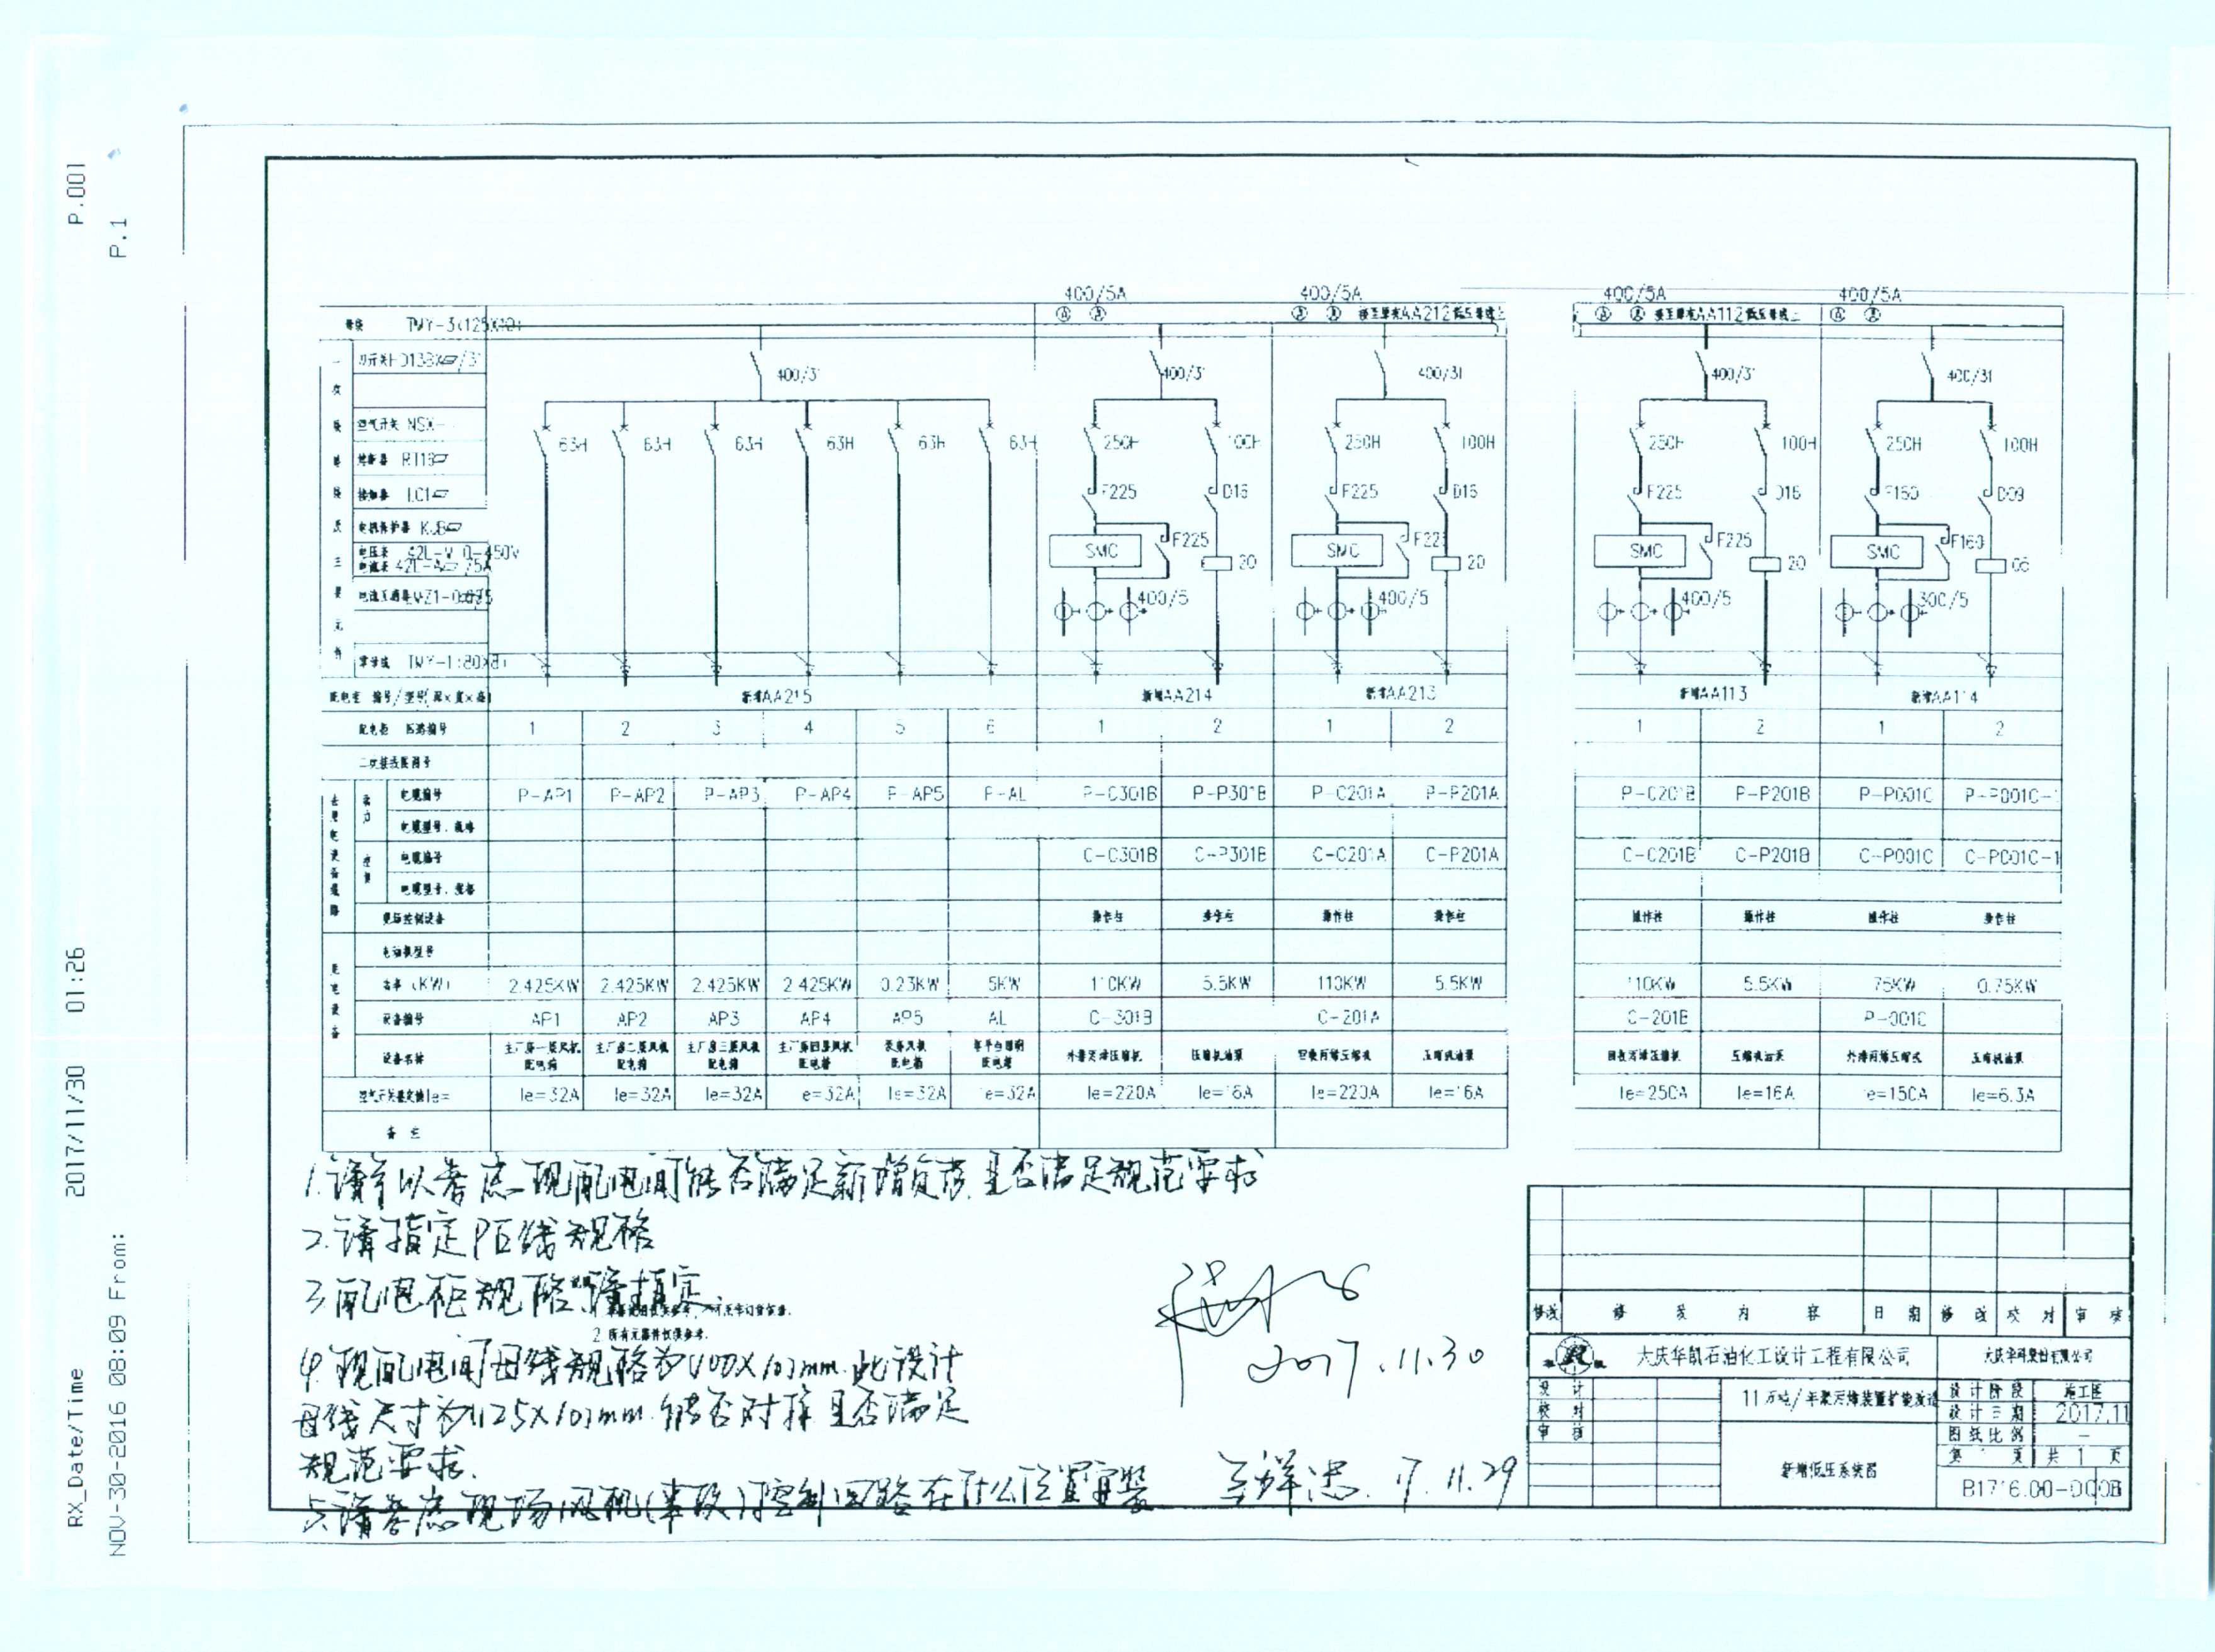 P.001
P.1
RX_Date/Time 2017/11/30 01:26
NOV-30-2016 08:09 From:
400/5A 400/5A 400/5A 400/5A
母线 TMY-3(125X10)
接至原有AA212低压母线上 接至原有AA112低压母线上
一次接线及主要元件
刀开关HD13BX /31
400/31 400/31 400/31 400/31 400/31
空气开关 NSX-
63H 63H 63H 63H 63H 63H 250H 100H 250H 100H 250H 100H 250H 100H
熔断器 RT18
接触器 LC1
F225 D16 F225 D16 F225 D16 F160 D09
电机保护器 KJB
电压表 42L-V 0-450V
电流表 42L-A /5A
SMC F225 20 SMC F225 20 SMC F225 20 SMC F160 06
电流互感器
400/5 400/5 400/5 300/5
零母线 TMY-1(80X8)
配电柜 编号/型号(深×宽×高) 新增AA215 新增AA214 新增AA213 新增AA113 新增AA114
配电柜 回路编号 1 2 3 4 5 6 1 2 1 2 1 2 1 2
二次接线图图号
动力 电缆编号 P-AP1 P-AP2 P-AP3 P-AP4 P-AP5 P-AL P-C301B P-P301B P-C201A P-P201A P-C201B P-P201B P-P001C P-P001C-1
电缆型号、规格
控制 电缆编号 C-C301B C-P301B C-C201A C-P201A C-C201B C-P201B C-P001C C-P001C-1
电缆型号、规格
现场控制设备 操作柱 操作柱 操作柱 操作柱 操作柱 操作柱 操作柱 操作柱
用电设备
电动机型号
功率(KW) 2.425KW 2.425KW 2.425KW 2.425KW 0.23KW 5KW 110KW 5.5KW 110KW 5.5KW 110KW 5.5KW 75KW 0.75KW
设备编号 AP1 AP2 AP3 AP4 AP5 AL C-301B C-201A C-201B P-001C
设备名称 主厂房一层风机配电箱 主厂房二层风机配电箱 主厂房三层风机配电箱 主厂房四层风机配电箱 风机配电箱 照明配电箱 压缩机 压缩机油泵 压缩机 压缩机油泵 压缩机 压缩机油泵 压缩机油泵
空气开关整定值Ie= Ie=32A Ie=32A Ie=32A Ie=32A Ie=32A Ie=32A Ie=220A Ie=16A Ie=220A Ie=16A Ie=250A Ie=16A Ie=150A Ie=6.3A
备 注
1.请予以考虑现配电间能否满足新增负荷.是否满足规范要求
2.请指定PE线规格
3.配电柜规格请指定
2 所有元器件仅供参考.
4.现配电间母线规格为100X10mm.此设计
母线尺寸为125X10mm.能否对接是否满足
规范要求.
5.请考虑现场风机(事故)控制回路在什么位置安装
2017.11.30
17.11.29
修改 修 改 内 容 日 期 修 改 校 对 审 核
大庆华凯石油化工设计工程有限公司 大庆华科股份有限公司
设 计
校 对
审 核
11万吨/年聚丙烯装置扩能改造
设计阶段 施工图
设计日期 2017.11
图纸比例 —
第 1 页 共 1 页
新增低压系统图
B1716.00-000B